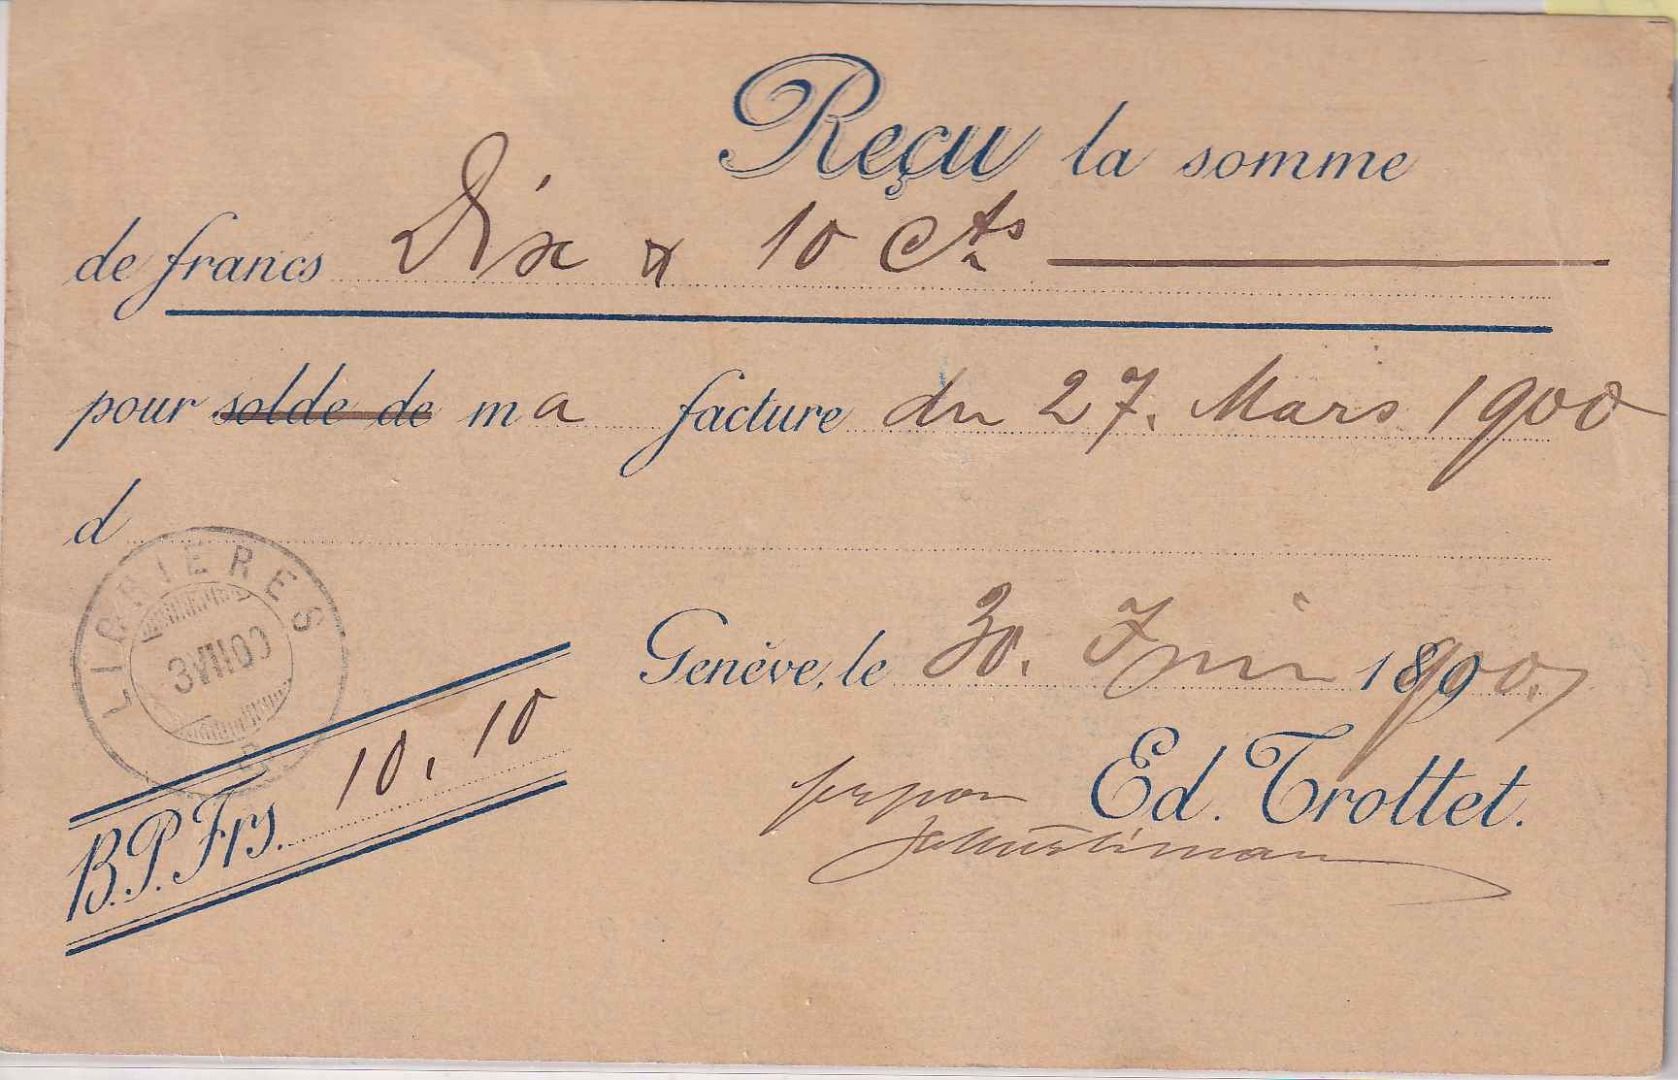 Reçu la somme
de francs Dix & 10 Cts
pour solde de ma facture du 27. Mars 1900
d
LIGNIERES
3 VII 00
Genève, le 30. Juin 1900.
B.P. Frs. 10,10
Ed. Trottet.